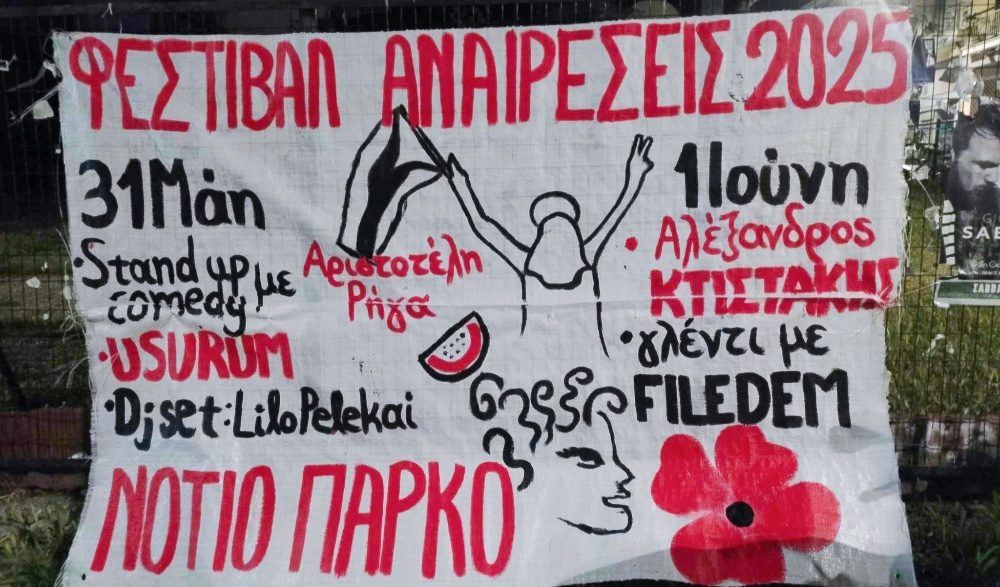 ΦΕΣΤΙΒΑΛ ΑΝΑΙΡΕΣΕΙΣ 2025
31 Μάη
·Stand up comedy με
Αριστοτέλη
Ρήγα
·USURUM
·Dj set: Lilo Pelekai
1 Ιούνη
·Αλέξανδρος
ΚΤΙΣΤΑΚΗΣ
·γλέντι με
FILEDEM
ΝΟΤΙΟ ΠΑΡΚΟ